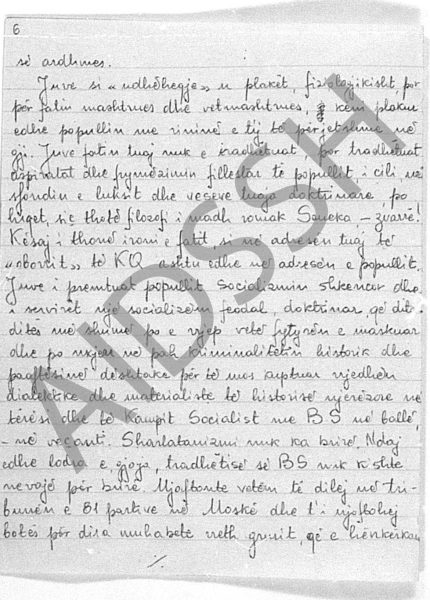 6
së ardhmes.
Juve si «udhëheqje» u plakët, fiziologjikisht, por
për fatin mashtrues dhe vetmashtrues, e keni plakur
edhe popullin me rininë e tij të përjetshme në
gji. Juve fatin tuaj nuk e tradhëtuat, por tradhëtuat
aspiratat dhe frymëzimin fillestar të popullit, i cili në
sfondin e luksit dhe veseve tuaja doktrinare, po
hiqet, siç thotë filozofi i madh romak Seneka – zvarë!
Kësaj i thonë ironi e fatit, si në adresën tuaj të
«oborrit» të KQ ashtu edhe në adresën e popullit.
Juve i premtuat popullit socializmin shkencor dhe
i servirët një socializëm feodal, doktrinar, që dita-
ditës më shumë po e rrjep vetë fytyrën e maskuar
dhe po nxjerr në pah kriminalitetin historik dhe
paaftësinë dështake për të mos kuptuar rrjedhën
dialektike dhe materialiste të historisë njerëzore në
tërësi dhe të Kampit Socialist me BS në ballë,
– në veçanti. Sharlatanizmi nuk ka brirë. Ndaj
edhe lodra e gjoja, tradhëtisë së BS nuk kishte
nevojë për brirë. Mjaftonte vetëm të dilej në tri-
bunën e 81 partive në Moskë dhe t'i njoftohej
botës për disa muhabete rreth grurit, që e kërkërkan
./.
AIDSSH